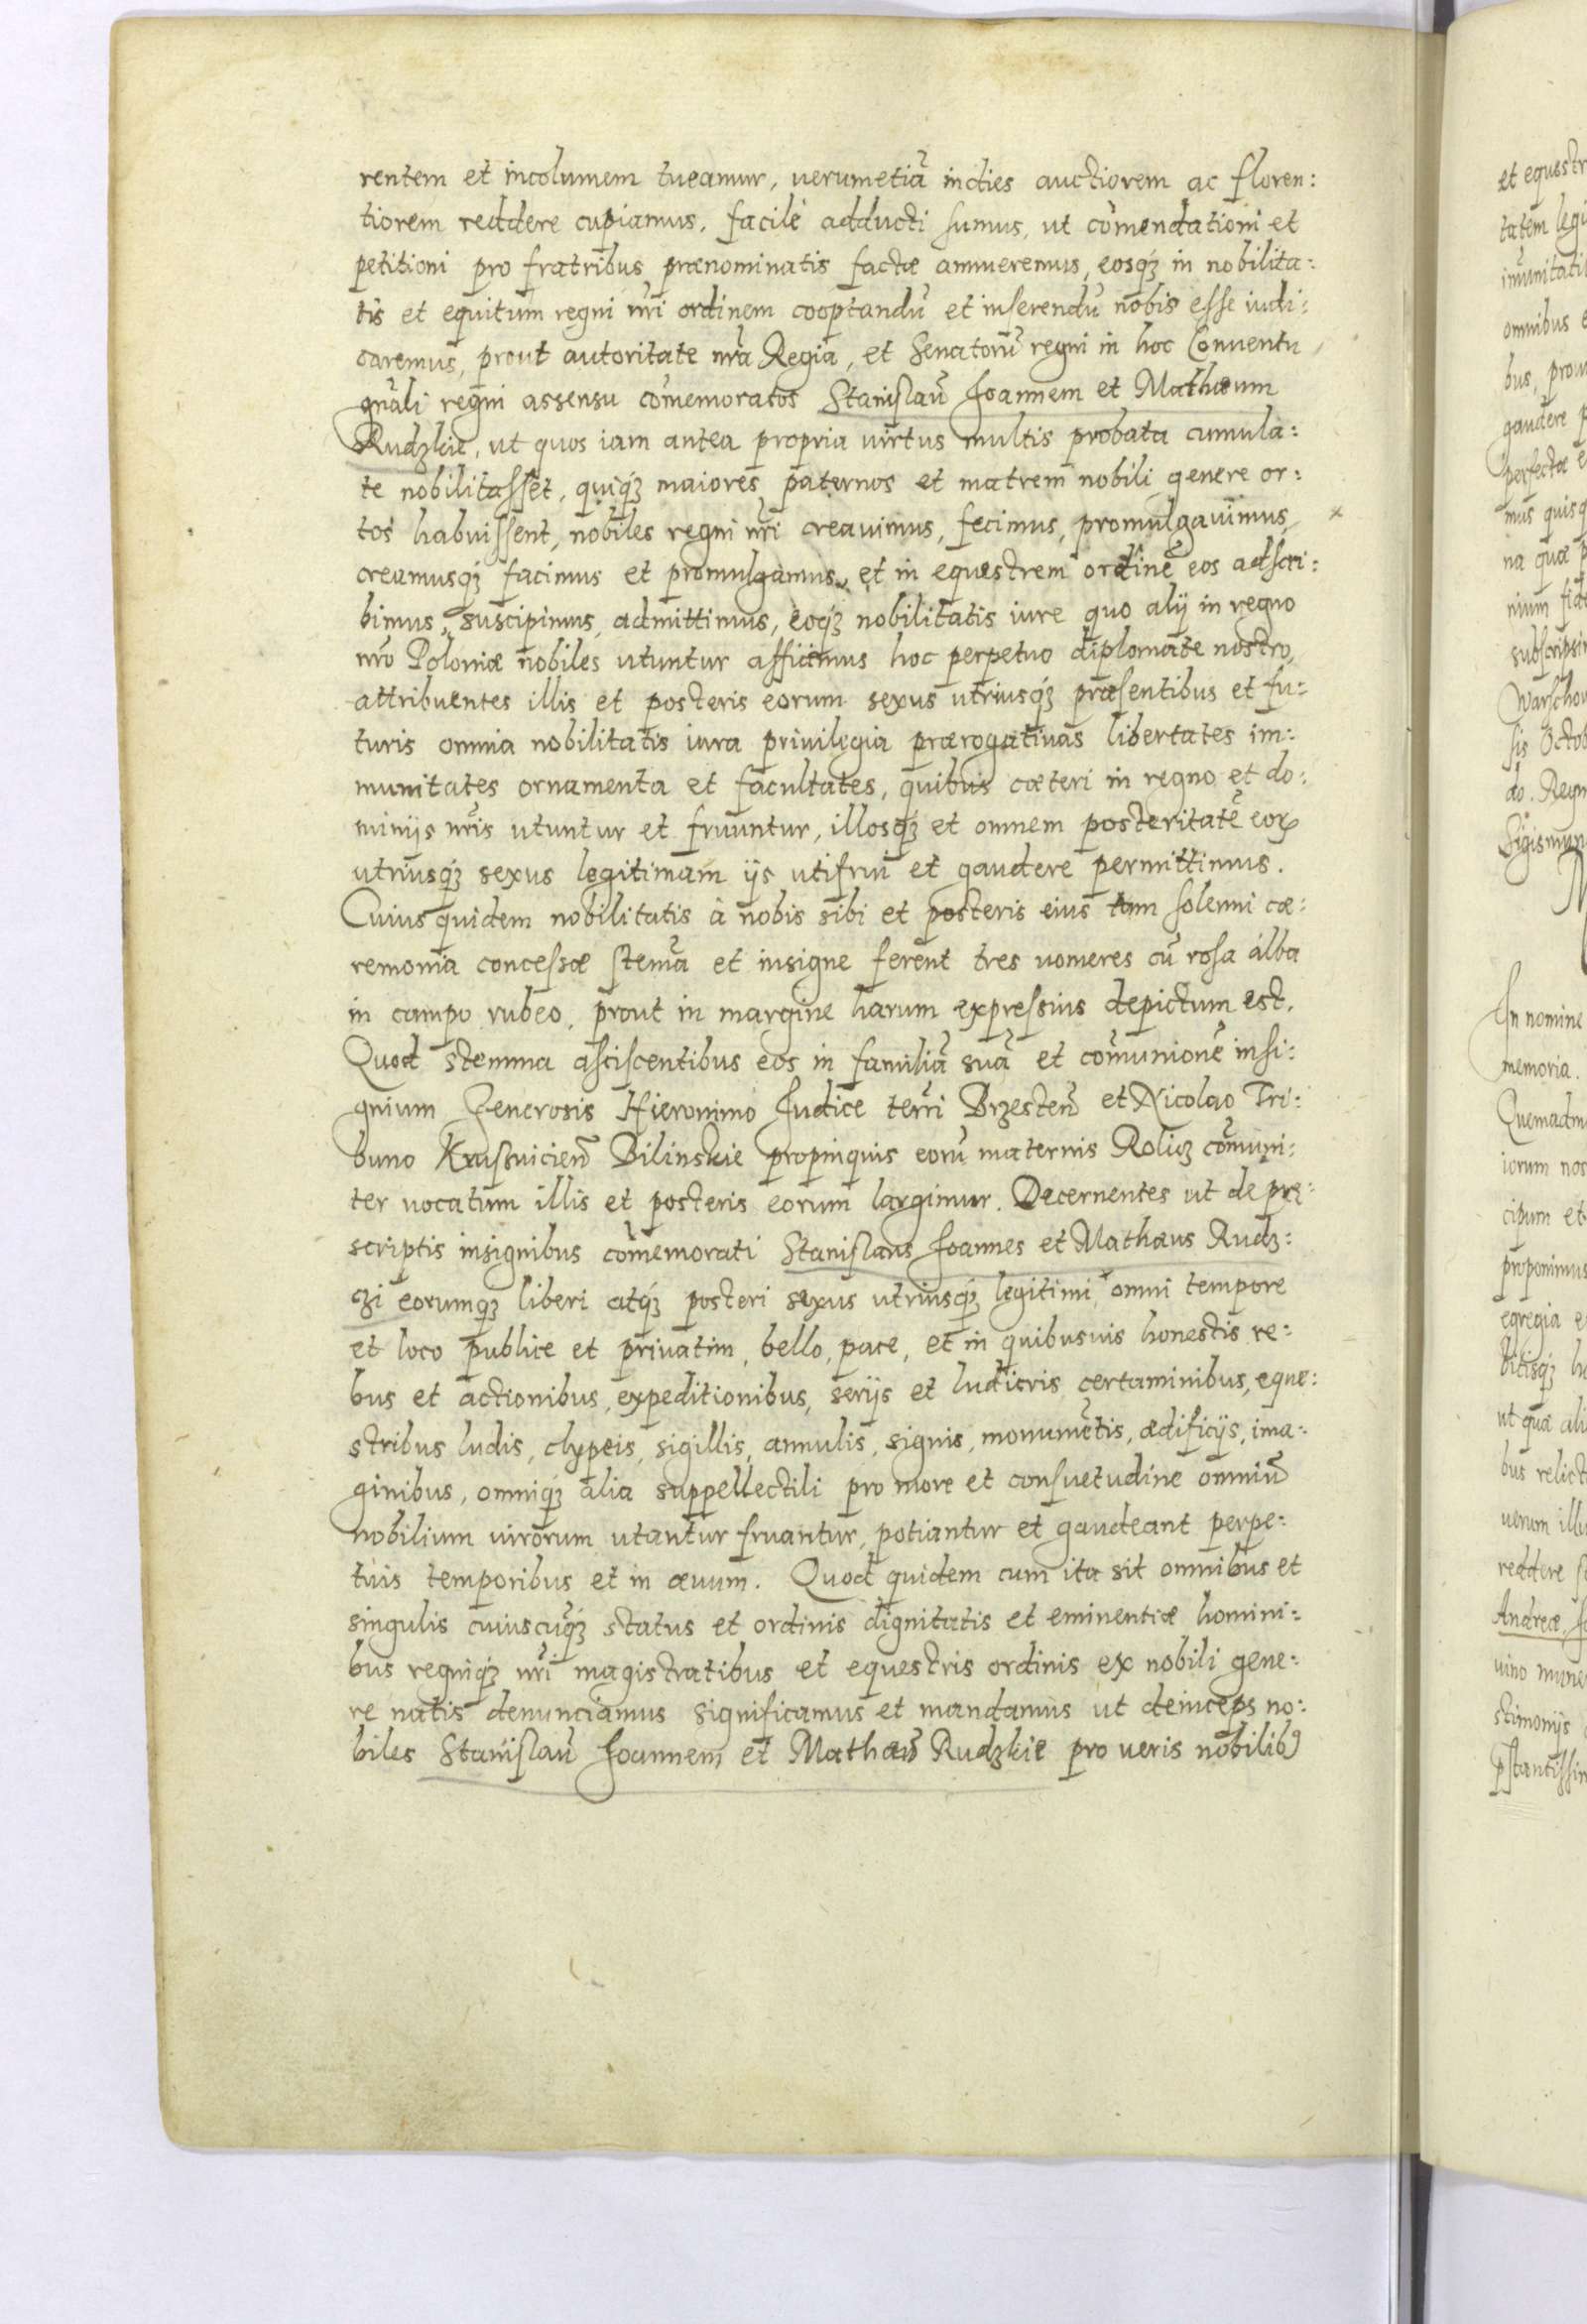 rentem et incolumem tueamur, uerumetiã indies auctiorem ac floren:
tiorem reddere cupiamus, facile adducti sumus, ut com̃endationi et
petitioni pro fratribus prænominatis factæ annueremus, eosq́ꝫ in nobilita:
tis et equitum regni nr̃i ordinem cooptandũ et inserendũ nobis esse iudi:
caremus, prout autoritate nr̃a Regia, et Senatorũ regni in hoc Conuentu
gnãli regni assensu com̃emoratos Stanislaũ Joannem et Mathæum
Rudzkie, ut quos iam antea propria uirtus multis probata cumula:
te nobilitasset, quiq́ꝫ maiores paternos et matrem nobili genere or:
tos habuissent, nobiles regni nr̃i creauimus, fecimus, promulgauimus, ×
creamusq́ꝫ facimus et promulgamus, et in equestrem ordinẽ eos adscri:
bimus, suscipimus, admittimus, eoq́ꝫ nobilitatis iure quo alij in regno
nr̃o Poloniæ nobiles utuntur afficimus hoc perpetuo diplomate nostro,
attribuentes illis et posteris eorum sexus utriusq́ꝫ præsentibus et fu:
turis omnia nobilitatis iura priuilegia prærogatiuas libertates im:
munitates ornamenta et facultates, quibus cæteri in regno et do:
minijs nr̃is utuntur et fruuntur, illosq́ꝫ et omnem posteritatẽ eoꝝ
utriusq́ꝫ sexus legitimam ijs utifrui et gaudere permittimus.
Cuius quidem nobilitatis à nobis sibi et posteris eius tam solenni cæ:
remonia concessæ stem̃a et insigne ferent tres uomeres cũ rosa alba
in campo rubeo, prout in margine harum expressius depictum est.
Quod stemma asciscentibus eos in familiã suã et com̃unionẽ insi:
gnium Generosis Hieronimo Judice terr̃i Brzesten̄ et Nicolao Tri:
buno Krusuicien̄ Bilinskie propinquis eorũ maternis Rolicz com̃uni:
ter uocatum illis et posteris eorum largimur. Decernentes ut de præ:
scriptis insignibus com̃emorati Stanislaus Joannes et Mathæus Rudz:
czi eorumq́ꝫ liberi atq́ꝫ posteri sexus utriusq́ꝫ legitimi, omni tempore
et loco publice et priuatim, bello, pace, et in quibusuis honestis re:
bus et actionibus, expeditionibus, serijs et ludicris certaminibus, eque:
stribus ludis, clypeis, sigillis, annulis, signis, monumẽtis, ædificijs, ima:
ginibus, omniq́ꝫ alia suppellectili pro more et consuetudine omniũ
nobilium uirorum utantur fruantur, potiantur et gaudeant perpe:
tuis temporibus et in æuum. Quod quidem cum ita sit omnibus et
singulis cuiuscũq́ꝫ status et ordinis dignitatis et eminentiæ homini:
bus regniq́ꝫ nr̃i magistratibus et equestris ordinis ex nobili gene:
re natis denunciamus significamus et mandamus ut deinceps no:
biles Stanislaũ Joannem et Mathæũ Rudzkie pro ueris nobilibꝰ